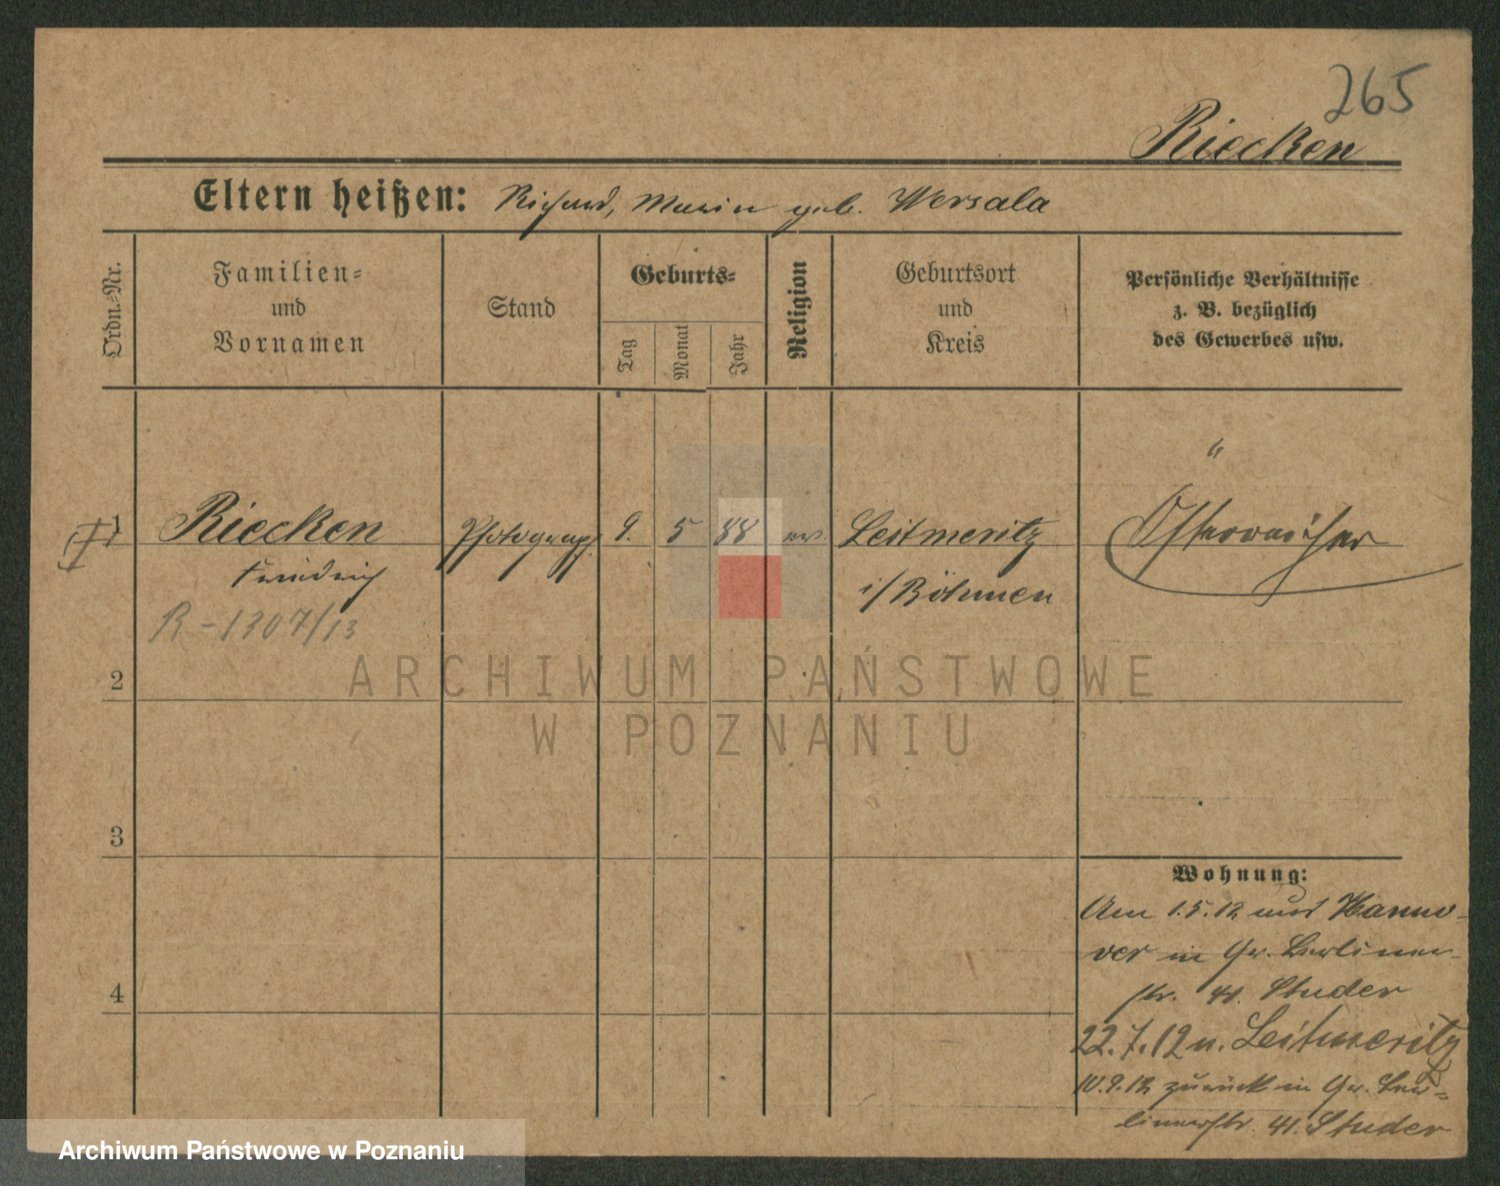 265
Riecken
Eltern heißen: Richard, Maria geb. Wersala
Ordn.-Nr.
Familien-
und
Vornamen
Stand
Geburts-
Tag
Monat
Jahr
Religion
Geburtsort
und
Kreis
Persönliche Verhältnisse
z. B. bezüglich
des Gewerbes usw.
1 Riecken Photograph 9. 5 88 ev. Leitmeritz Österreicher
Friedrich i/Böhmen
R-1307/13
ARCHIWUM PAŃSTWOWE
W POZNANIU
2
3
4
Wohnung:
Am 1.5.12 aus Hanno-
ver in Gr. Berliner-
str. 41. Studer
22.7.12 n. Leitmeritz
10.9.12 zurück in Gr. Ber-
linerstr. 41. Studer
Archiwum Państwowe w Poznaniu